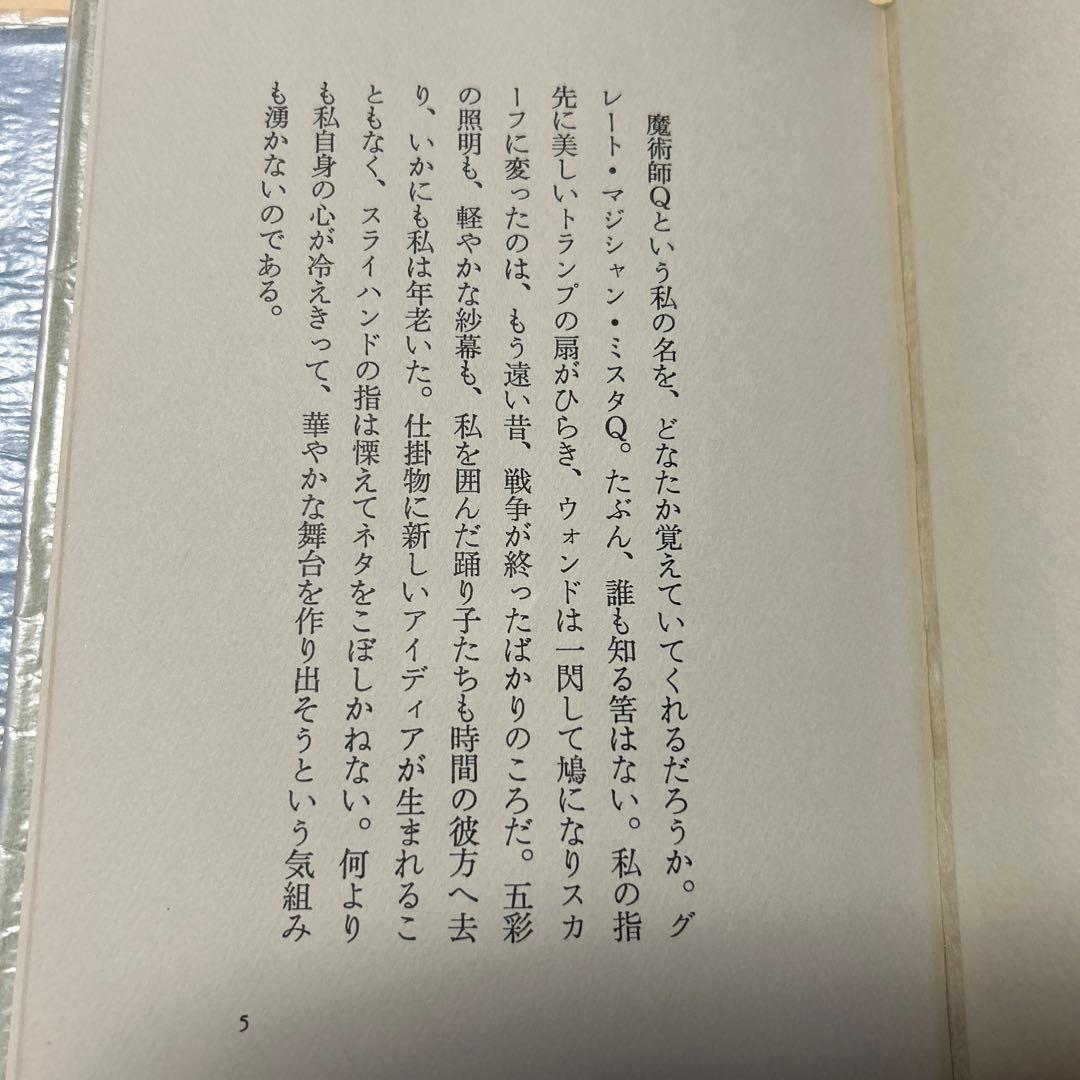 魔術師Qという私の名を、どなたか覚えていてくれるだろうか。グ
レート・マジシャン・ミスタQ。たぶん、誰も知る筈はない。私の指
先に美しいトランプの扇がひらき、ウォンドは一閃して鳩になりスカ
ーフに変ったのは、もう遠い昔、戦争が終ったばかりのころだ。五彩
の照明も、軽やかな紗幕も、私を囲んだ踊り子たちも時間の彼方へ去
り、いかにも私は年老いた。仕掛物に新しいアイディアが生まれるこ
ともなく、スライハンドの指は慄えてネタをこぼしかねない。何より
も私自身の心が冷えきって、華やかな舞台を作り出そうという気組み
も湧かないのである。
5